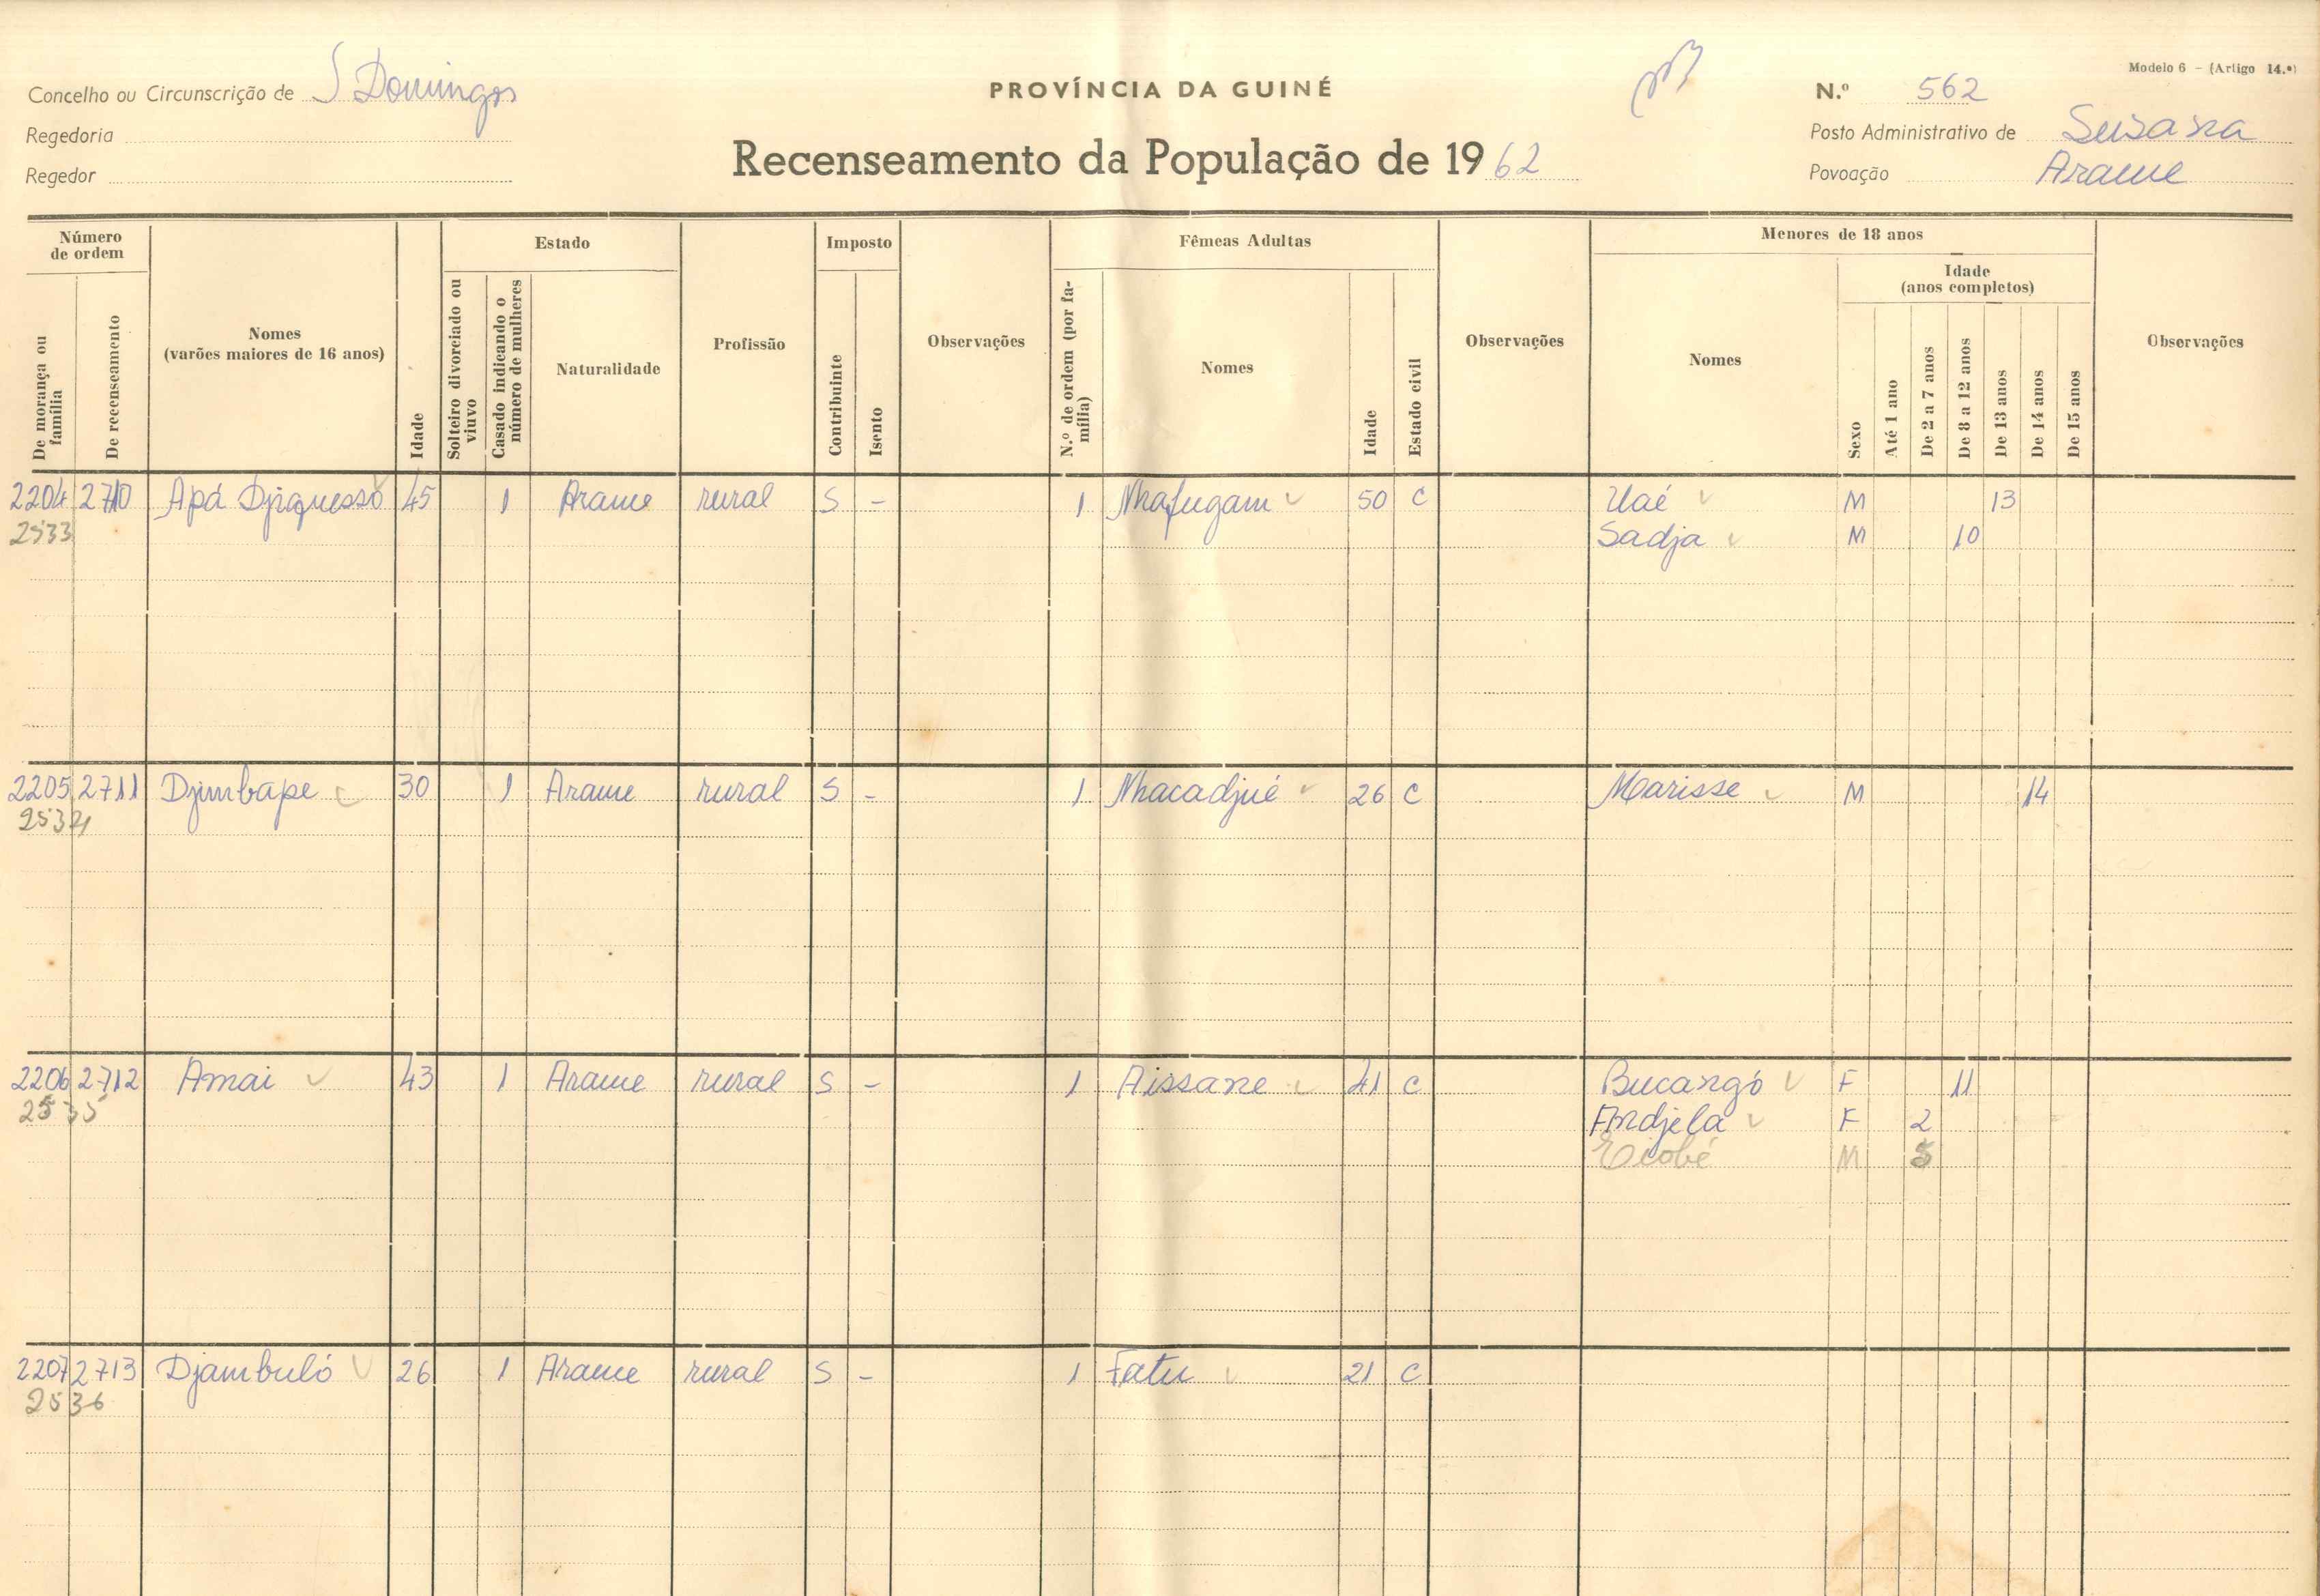 Modelo 6 - (Artigo 14.º)
Concelho ou Circunscrição de S Domingos
PROVÍNCIA DA GUINÉ
N.º 562
Regedoria
Recenseamento da População de 1962
Posto Administrativo de Susana
Regedor
Povoação Arame
Número de ordem
De morança ou família
De recenseamento
Nomes
(varões maiores de 16 anos)
Idade
Estado
Solteiro divorciado ou viuvo
Casado indicando o número de mulheres
Naturalidade
Profissão
Imposto
Contribuinte
Isento
Observações
Fêmeas Adultas
N.º de ordem (por família)
Nomes
Idade
Estado civil
Observações
Menores de 18 anos
Nomes
Sexo
Idade
(anos completos)
Até 1 ano
De 2 a 7 anos
De 8 a 12 anos
De 13 anos
De 14 anos
De 15 anos
Observações
2204 2710 Apá Djiquessó 45 1 Arame rural S - 1 Nhafugam 50 C Uaé M 13
2533 Sadja M 10
2205 2711 Djimbape 30 1 Arame rural S - 1 Nhacadjué 26 C Marisse M 14
2534
2206 2712 Amai 43 1 Arame rural S - 1 Aissane 41 C Bucangó F 11
2535 Andjela F 2
M 5
2207 2713 Djambuló 26 1 Arame rural S - 1 Fatu 21 C
2536